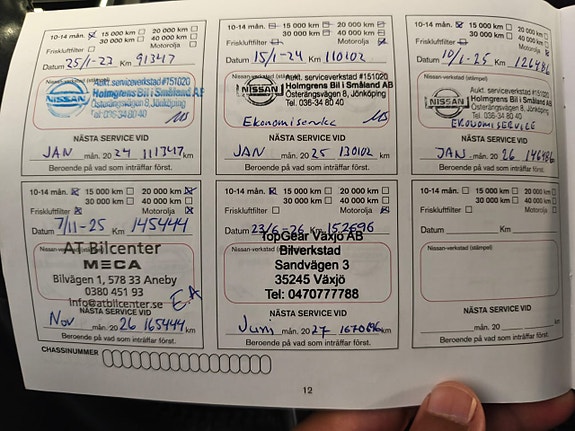 10-14 mån. 15 000 km 20 000 km
30 000 km
Friskluftfilter Motorolja
Datum 25/1-23 Km 91347
Nissan-verkstad (stämpel)
Aukt. serviceverkstad #151020
NISSAN Holmgrens Bil i Småland AB
Österängsvägen 8, Jönköping
Tel. 036-34 80 40
NÄSTA SERVICE VID
JAN mån. 20 24 111347 km
Beroende på vad som inträffar först.
10-14 mån. 15 000 km 20 000 km
30 000 km
Friskluftfilter Motorolja
Datum 15/1-24 Km 110102
Nissan-verkstad (stämpel)
Aukt. serviceverkstad #151020
NISSAN Holmgrens Bil i Småland AB
Österängsvägen 8, Jönköping
Tel. 036-34 80 40
Ekonomiservice
NÄSTA SERVICE VID
JAN mån. 20 25 130102 km
Beroende på vad som inträffar först.
10-14 mån. 15 000 km 20 000 km
30 000 km
Friskluftfilter Motorolja
Datum 10/1-25 Km 126486
Nissan-verkstad (stämpel)
Aukt. serviceverkstad #151020
NISSAN Holmgrens Bil i Småland AB
Österängsvägen 8, Jönköping
Tel. 036-34 80 40
EKONOMISERVICE
NÄSTA SERVICE VID
JAN mån. 20 26 146486 km
Beroende på vad som inträffar först.
10-14 mån. 15 000 km 20 000 km
30 000 km
Friskluftfilter Motorolja
Datum 7/11-25 Km 145444
Nissan-verkstad (stämpel)
AT Bilcenter
MECA
Bilvägen 1, 578 33 Aneby
0380 451 93
info@atbilcenter.se
EA
NÄSTA SERVICE VID
Nov mån. 20 26 165444 km
Beroende på vad som inträffar först.
10-14 mån. 15 000 km 20 000 km
30 000 km
Friskluftfilter Motorolja
Datum 23/6-26 Km 152696
TopGear Växjö AB
Nissan-verkstad (stämpel)
Bilverkstad
Sandvägen 3
35245 Växjö
Tel: 0470777788
NÄSTA SERVICE VID
mån. 20 27 km
Beroende på vad som inträffar först.
10-14 mån. 15 000 km 20 000 km
30 000 km
Friskluftfilter Motorolja
Datum Km
Nissan-verkstad (stämpel)
NÄSTA SERVICE VID
mån. 20 km
Beroende på vad som inträffar först.
CHASSINUMMER
12